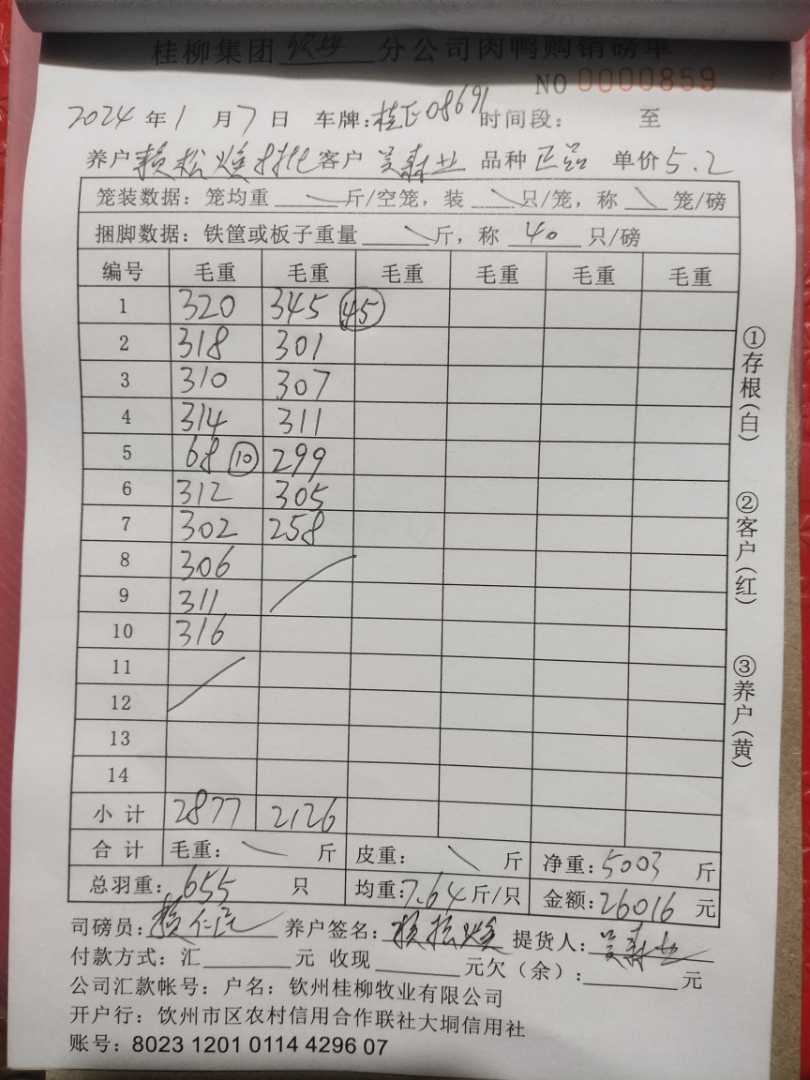 桂柳集团 钦州 分公司肉鸭购销磅单
NO 0000859
2024 年 1 月 7 日 车牌: 08691 时间段: 至
养户 赖松焕 客户 吴森业 品种 正品 单价 5.2
笼装数据: 笼均重 \ 斤/空笼, 装 \ 只/笼, 称 \ 笼/磅
捆脚数据: 铁筐或板子重量 \ 斤, 称 40 只/磅
编号 毛重 毛重 毛重 毛重 毛重 毛重
1 320 345 45
2 318 301
3 310 307
4 314 311
5 68 10 299
6 312 305
7 302 258
8 306
9 311
10 316
11
12
13
14
小计 2877 2126
合计 毛重: \ 斤 皮重: \ 斤 净重: 5003 斤
总羽重: 655 只 均重: 7.64 斤/只 金额: 26016 元
司磅员: 养户签名: 赖松焕 提货人: 吴森业
付款方式: 汇 元 收现 元欠(余): 元
公司汇款帐号: 户名: 钦州桂柳牧业有限公司
开户行: 饮州市区农村信用合作联社大垌信用社
账号: 8023 1201 0114 4296 07
①存根(白)
②客户(红)
③养户(黄)